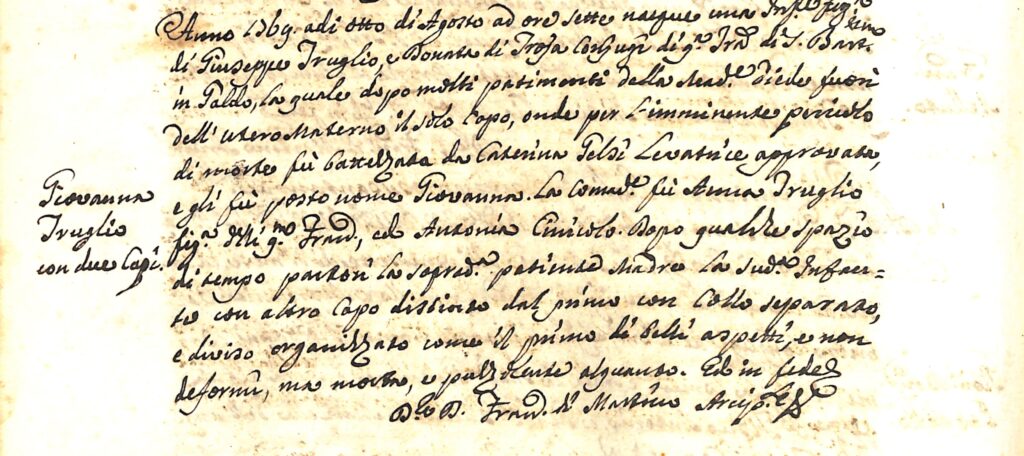 Anno 1769. adi otto di Agosto ad ore sette nacque una Inf.e figl.a
di Giuseppe Truglio, e Donata di Troja Conjugi di q.a Tra di S. Bart.meo
in Galdo, la quale dopo molti patimenti della Mad.e diede fuori
dell'utero Materno il solo Capo, onde per l'imminente pericolo
di morte fù battezzata da Caterina Gelsi Levatrice approvata,
e gli fù posto nome Giovanna. La Comad.e fù Anna Truglio
fig.a delli q.m Fran.co, ed Antonia Cinicolo. Dopo qualche spazio
di tempo partorì la soprad.a patiente Madre la sud.a Infan=
te con altro Capo distinto dal primo con Collo separato,
e diviso organizzato come il primo di belli aspetti, e non
deformi, ma morta, e puzzolente alquanto. Ed in fede
D. Fran.co de Martino Arcip.te
Giovanna
Truglio
con due Capi.